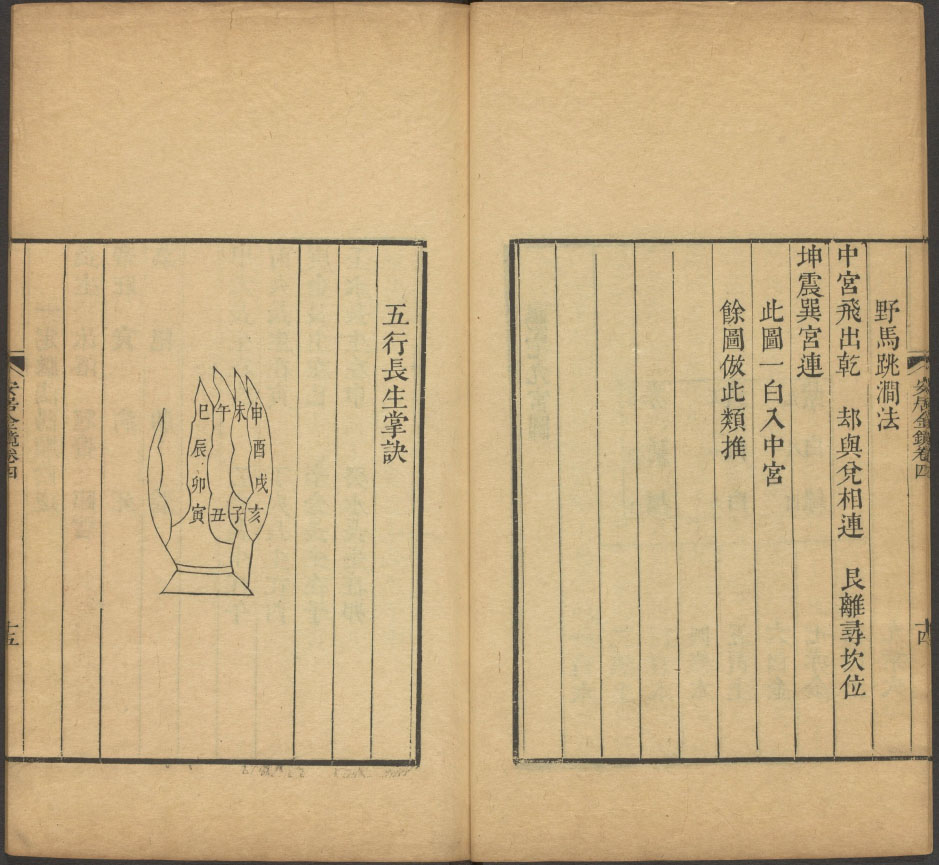 野馬跳澗法
中宮飛出乾　却與兌相連　艮離尋坎位
坤震巽宮連
此圖一白入中宮
餘圖倣此類推
安居金鏡卷四
十四
五行長生掌訣
申酉戌亥
未
子
午
丑
巳辰卯寅
安居金鏡卷四
十五